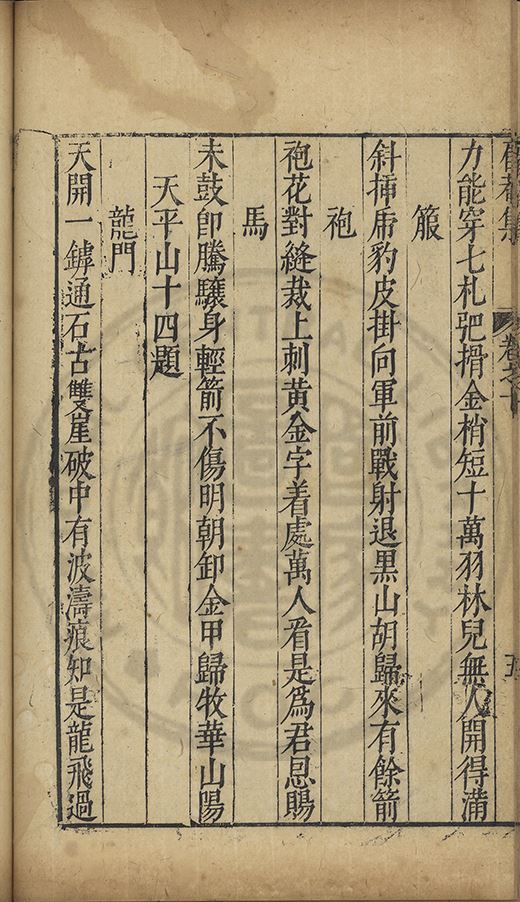 卷之十
五
力能穿七札弝搰金梢短十萬羽林兒無人開得滿
箙
斜揷虎豹皮掛向軍前戰射退黑山胡歸來有餘箭
袍
袍花對縫裁上刺黄金字着處萬人看是爲君恩賜
馬
未鼓卽騰驤身輕箭不傷明朝卸金甲歸牧華山陽
天平山十四題
龍門
天開一鏬通石古雙崖破中有波濤痕知是龍飛過